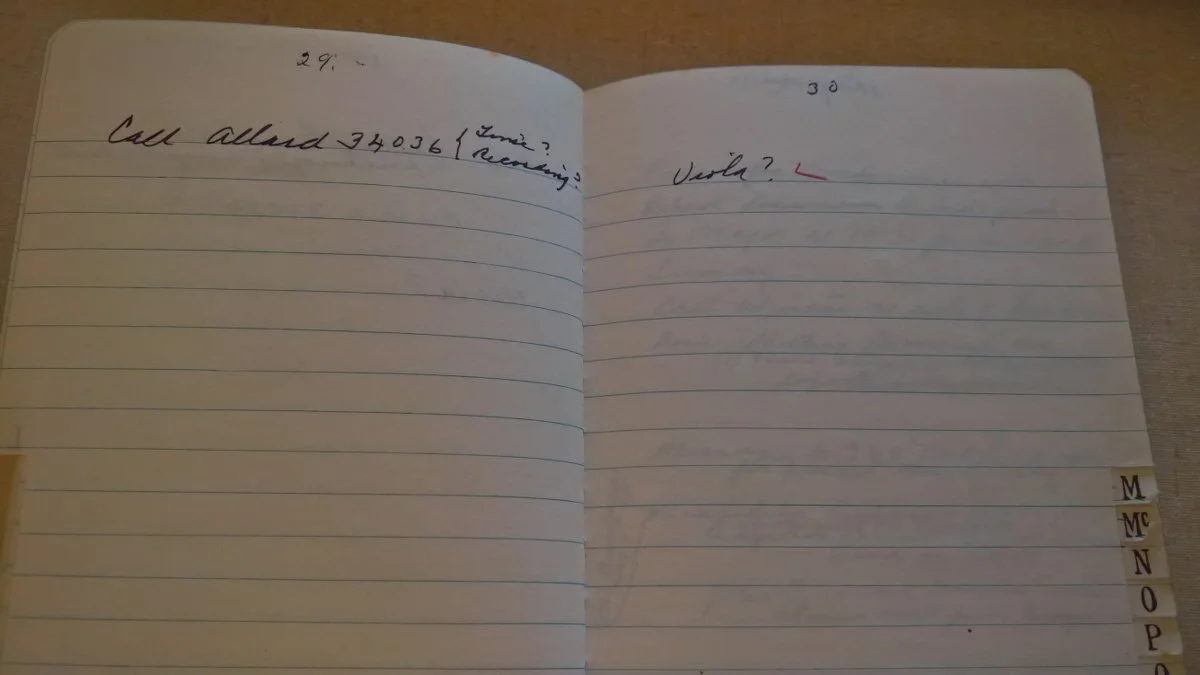 29.
Call Allard 34036 { Time?
Recording?
30
Viola?
M
Mc
N
O
P